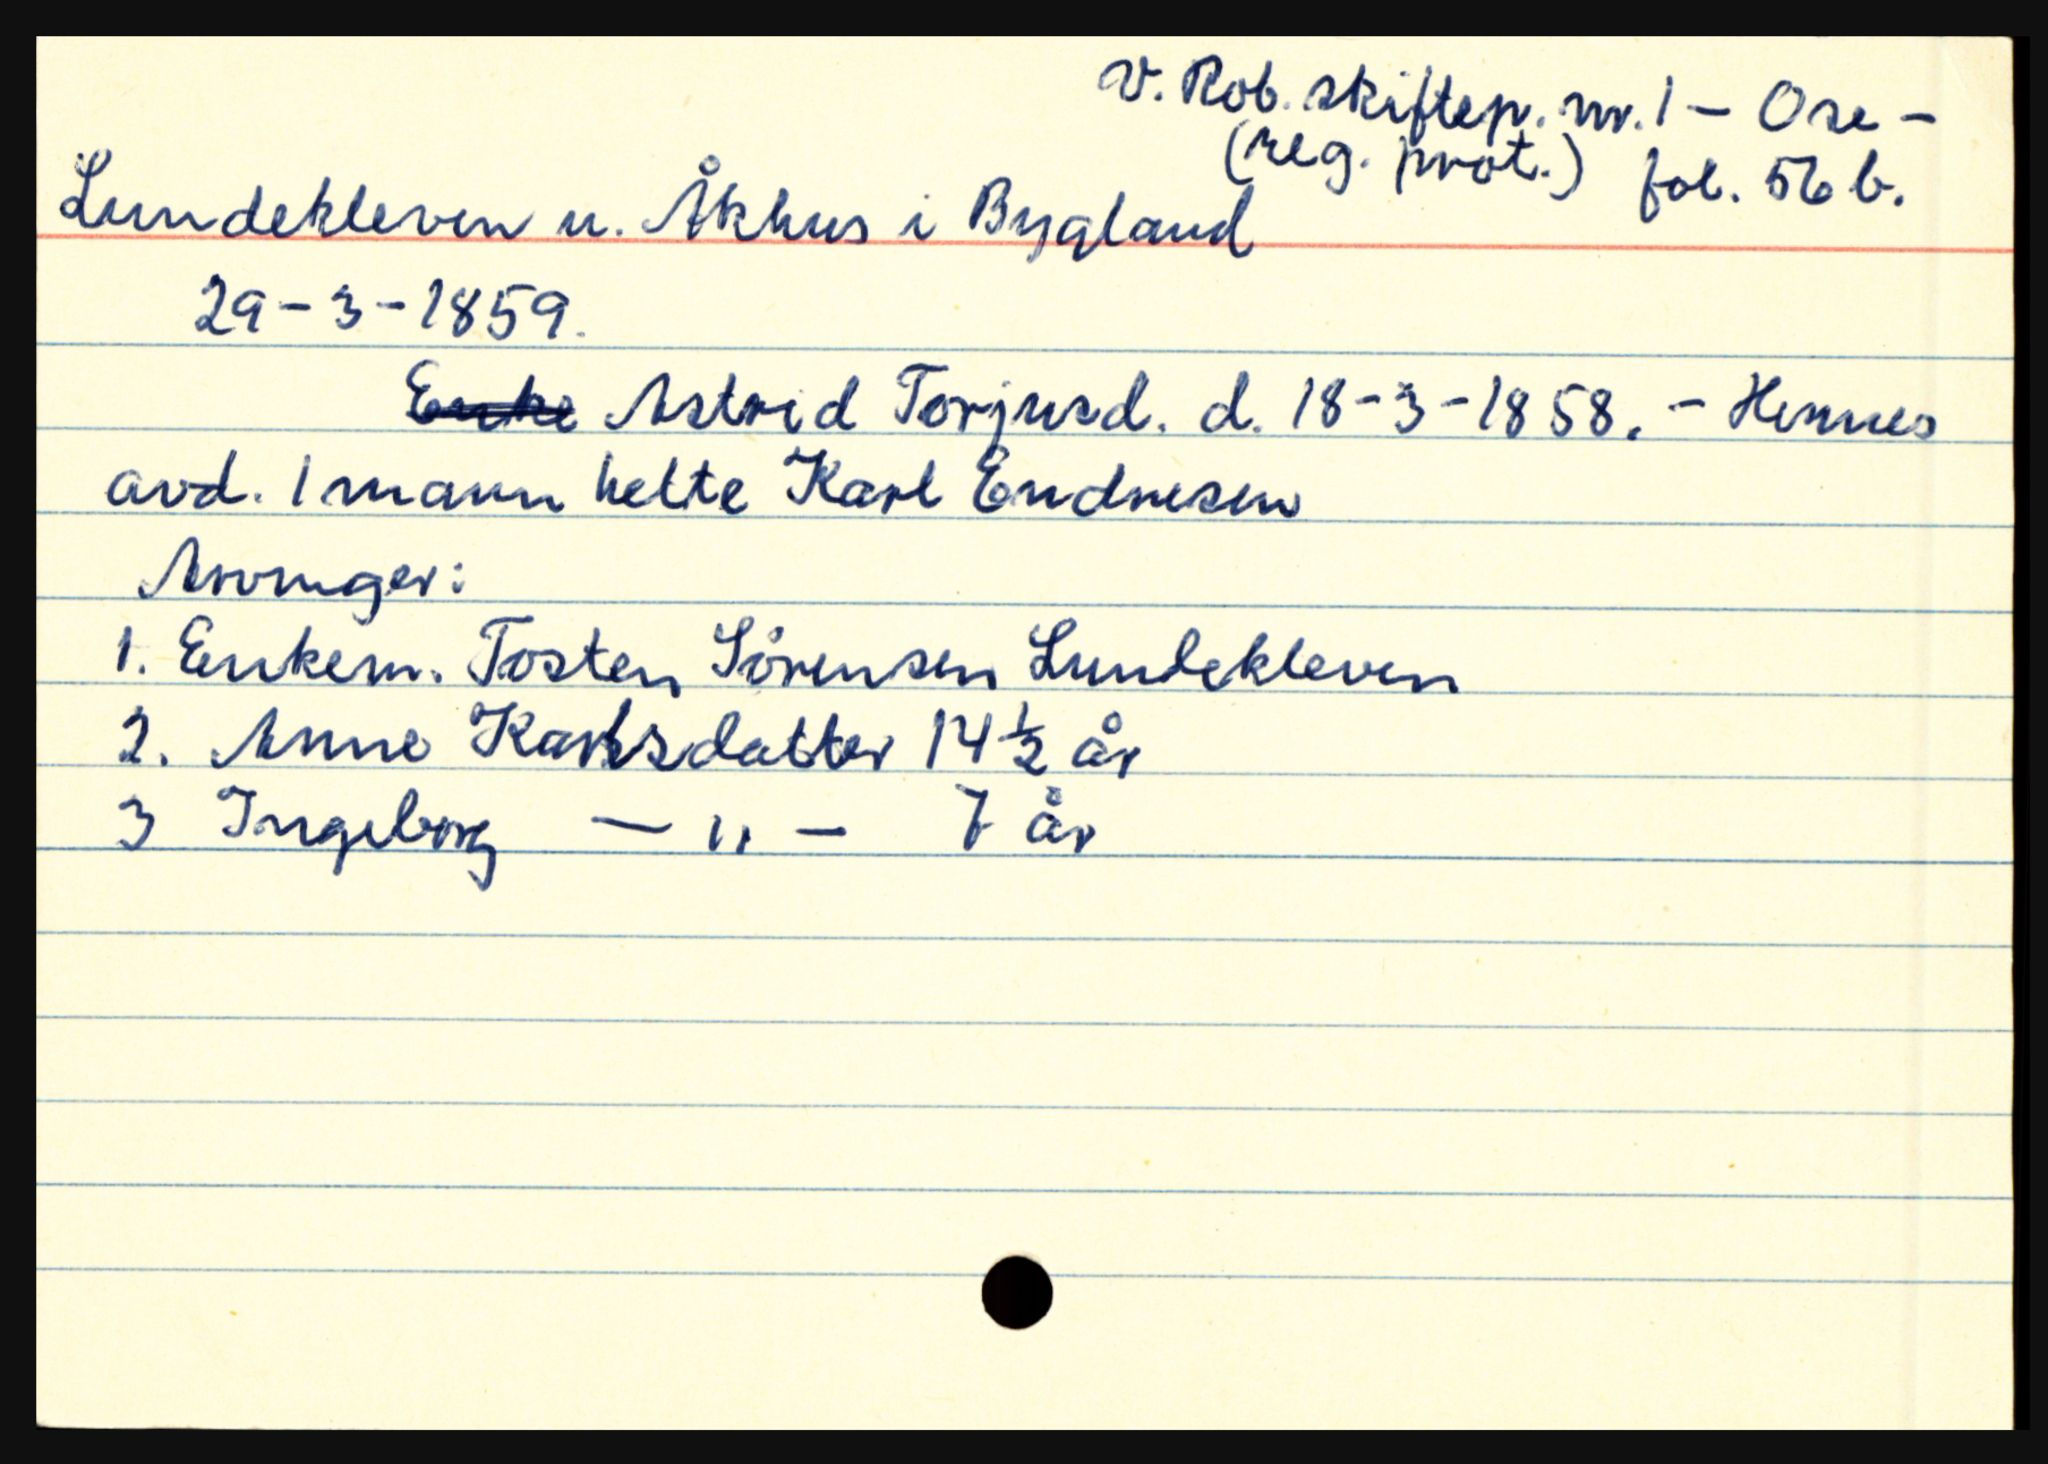 V. Rob. skiftep. nr. 1 - Ose -
(reg. prot.) fol. 56 b.
Lundekleven u. Åkhus i Bygland
29-3-1859.
Enke Astrid Torjusd. d. 18-3-1858. - Hennes
avd. 1 mann hette Karl Endresen
Arvinger:
1. Enkem. Tosten Sørensen Lundekleven
2. Anne Karlsdatter 14 ½ år
3 Ingeborg - " - 7 år